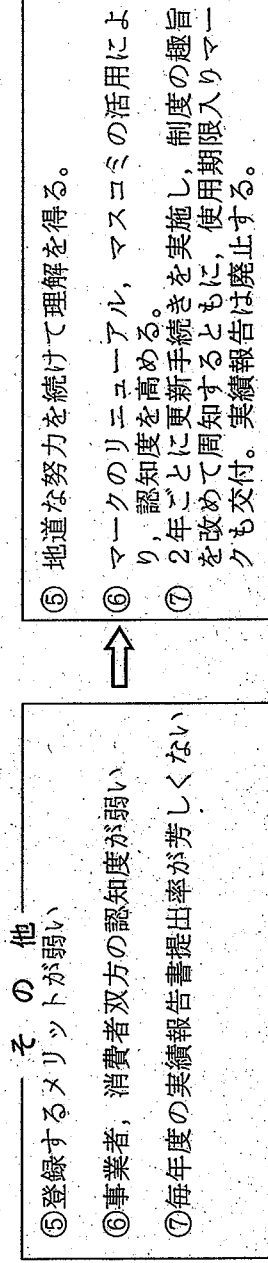 その他
⑤登録するメリットが弱い
⑥事業者，消費者双方の認知度が弱い
⑦毎年度の実績報告書提出率が芳しくない
⑤ 地道な努力を続けて理解を得る。
⑥ マークのリニューアル，マスコミの活用によ
り，認知度を高める。
⑦ 2年ごとに更新手続きを実施し，制度の趣旨
を改めて周知するともに，使用期限入りマー
クも交付。実績報告は廃止する。